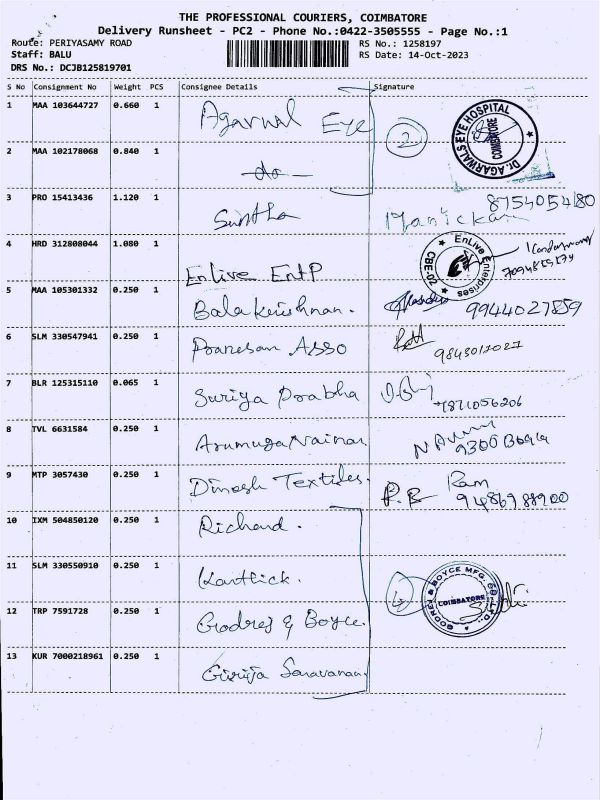 THE PROFESSIONAL COURIERS, COIMBATORE
Delivery Runsheet - PC2 - Phone No.:0422-3505555 - Page No.:1
Route: PERIYASAMY ROAD
RS No.: 1258197
Staff: BALU
RS Date: 14-Oct-2023
DRS No.: DCJB125819701
S No Consignment No Weight PCS Consignee Details Signature
1 MAA 103644727 0.660 1 Agarwal Eye 2 Dr. AGARWALS EYE HOSPITAL COIMBATORE
2 MAA 102178068 0.840 1 do
3 PRO 15413436 1.120 1 Manickam 8754054180
4 HRD 312808044 1.080 1 Enlive EntP EnLive Enterprises CBE-20
5 MAA 105301332 0.250 1 Balakrishnan. 9944027859
6 SLM 330547941 0.250 1 Pranesan Asso 9843017027
7 BLR 125315110 0.065 1 Suriya Prabha 7871056206
8 TVL 6631584 0.250 1 Arumuga Nainar
9 MTP 3057430 0.250 1 Dinesh Textiles. P.R Ram 9486988900
10 IXM 504850120 0.250 1 Richard.
11 SLM 330550910 0.250 1 Karthick. 4 GODREJ & BOYCE MFG. CO. LTD. COIMBATORE
12 TRP 7591728 0.250 1 Godrej & Boyce.
13 KUR 7000218961 0.250 1 Girija Saravanan.